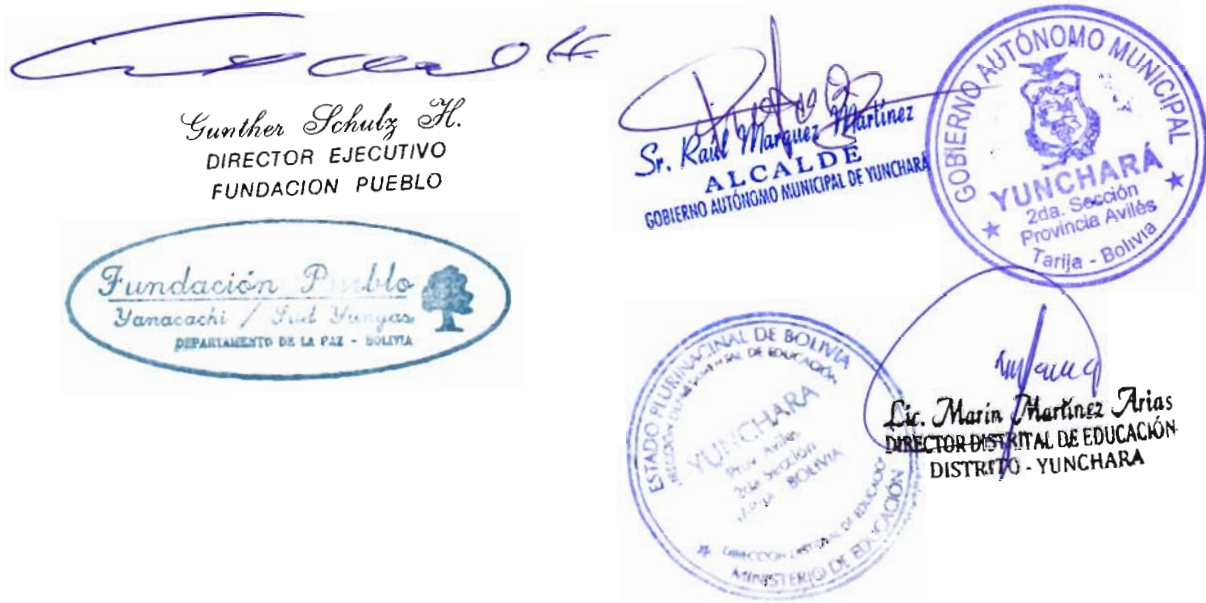 Gunther Schulz H.
DIRECTOR EJECUTIVO
FUNDACION PUEBLO
Fundación Pueblo
Yanacachi / Sud Yungas
DEPARTAMENTO DE LA PAZ - BOLIVIA
Sr. Raúl Marquez Martínez
ALCALDE
GOBIERNO AUTÓNOMO MUNICIPAL DE YUNCHARÁ
GOBIERNO AUTÓNOMO MUNICIPAL
YUNCHARÁ
2da. Sección
Provincia Avilés
Tarija - Bolivia
ESTADO PLURINACINAL DE BOLIVIA
DE EDUCACIÓN
YUNCHARA
Prov. Aviles
2da Sección
BOLIVIA
MINISTERIO DE EDUCACIÓN
Lic. Marín Martínez Arias
DIRECTOR DISTRITAL DE EDUCACIÓN
DISTRITO - YUNCHARA